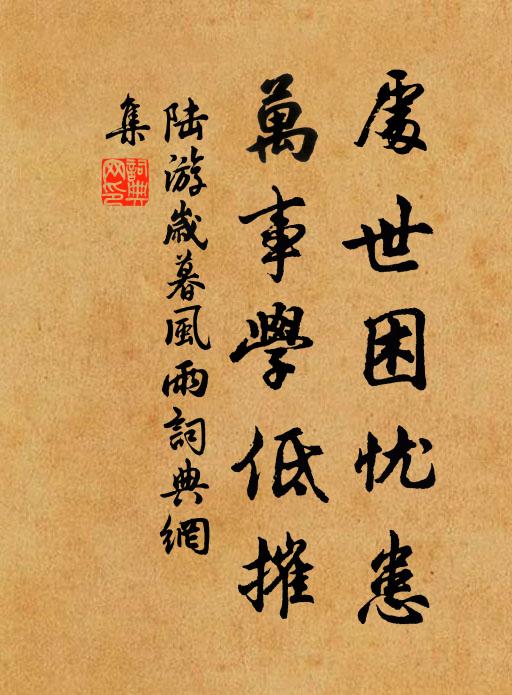 處世困忧患
萬事學低摧
陆游歲暮風雨詞典網
集
詞典
网印